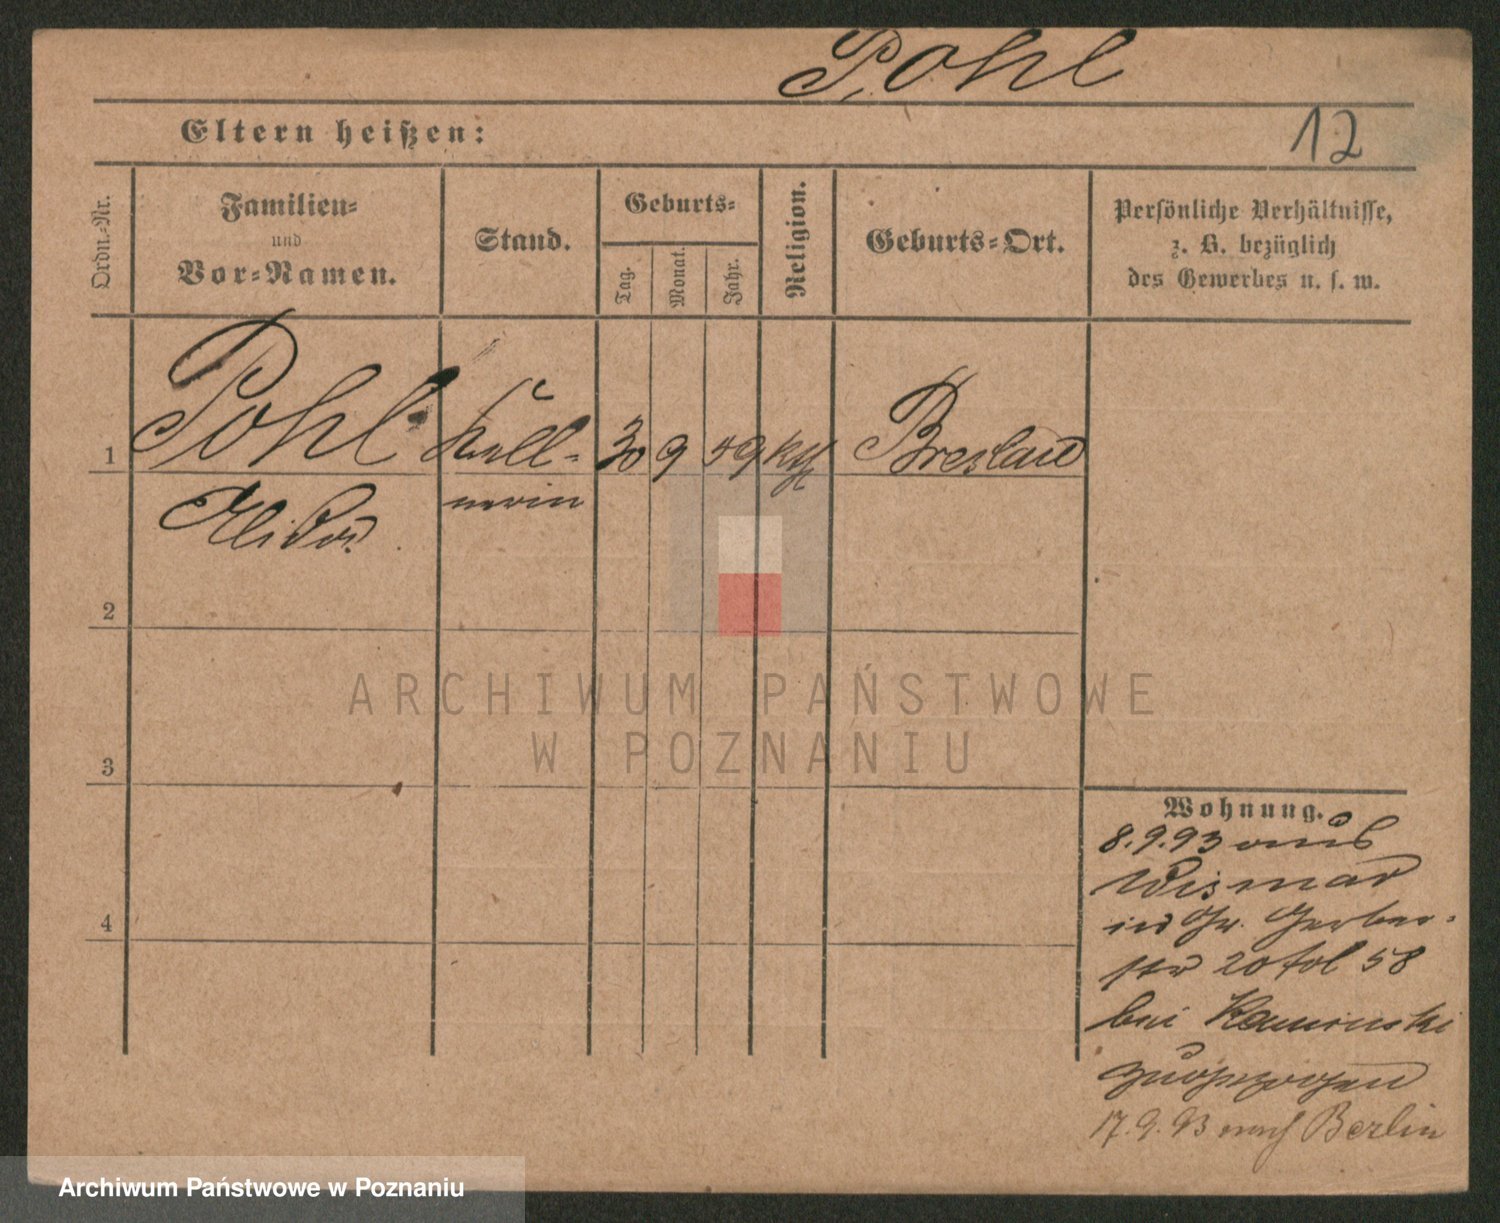 Pohl
Eltern heißen:
12
Ordn.-Nr.
Familien-
und
Vor-Namen.
Stand.
Geburts-
Tag.
Monat.
Jahr.
Religion.
Geburts-Ort.
Persönliche Verhältnisse,
z. B. bezüglich
des Gewerbes u. s. w.
1
Pohl
Kell-
30 9 59 kth
Breslau
nerin
2
3
4
Wohnung.
8.9.93 aus
Wismar
in Gr. Gerber-
str 20 fol 58
bei Kaminski
zugezogen
17.9.93 nach Berlin
ARCHIWUM PAŃSTWOWE
W POZNANIU
Archiwum Państwowe w Poznaniu